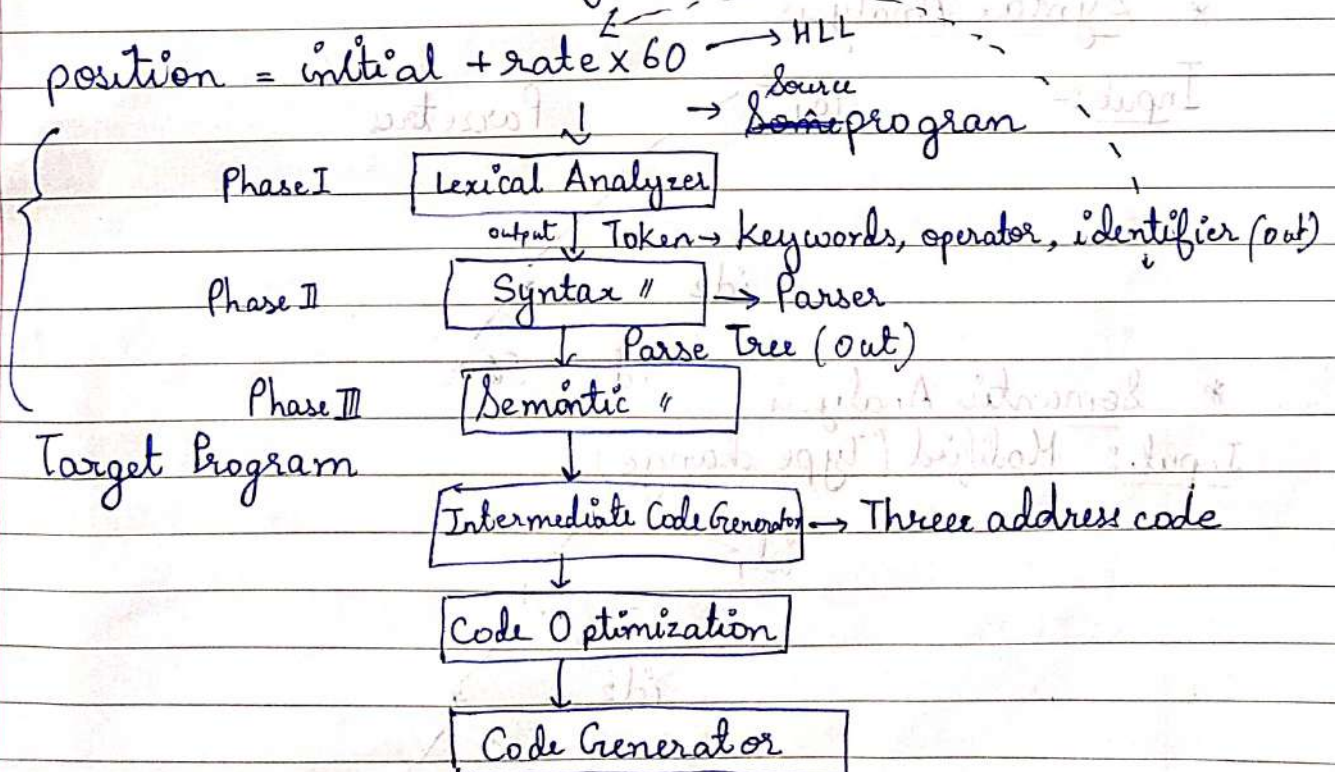 position = initial + rate x 60 → HLL
→ Source program
Phase I Lexical Analyzer
output Token → keywords, operator, identifier (out)
Phase II Syntax " → Parser
Parse Tree (out)
Phase III Semantic "
Target Program
Intermediate Code Generator → Threee address code
Code Optimization
Code Generator